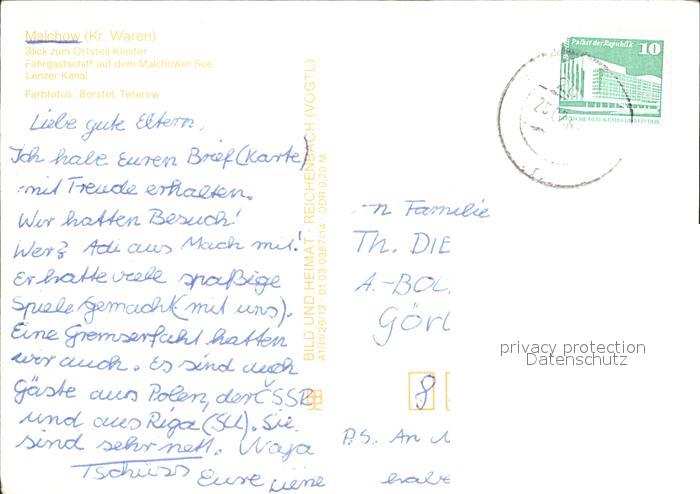 Malchow (Kr. Waren)
Blick zum Ortsteil Kloster
Fahrgastschiff auf dem Malchower See
Lenzer Kanal
Farbfotos: Borstel, Teterow
Liebe gute Eltern,
Ich habe Euren Brief (Karte)
mit Freude erhalten.
Wir hatten Besuch!
Wer? Adi aus Mach mit!
Er hatte viele spaßige
Spiele gemacht (mit uns).
Eine Gremserfahrt hatten
wir auch. Es sind auch
Gäste aus Polen, der ČSSR
und aus Riga (SU). Sie
sind sehr nett. Naja
Tschüss Eure
BILD UND HEIMAT · REICHENBACH (VOGTL)
A1/III/26/13 · 01 03 0367/14 · DDR 0,20 M
Palast der Republik 10
n Familie
Th. DIE
A.-BOL
Görl
8
P.S. An
habe
privacy protection
Datenschutz